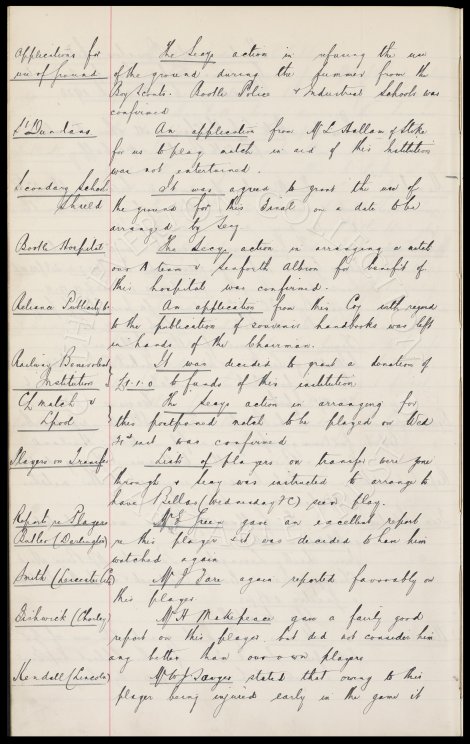 Applications for
use of Ground
The Secys action in refusing the use
of the ground during the summer from the
Boy Scouts. Bootle Police & Industrial Schools was
confirmed
St Dunstans
An application from Mr L Hallam of Stoke
for us to play match in aid of this Institution
was not entertained.
Secondary School
Shield
It was agreed to grant the use of
the ground for this Final on a date to be
arranged by Secy
Bootle Hospital
The Secys action in arranging a match
our A team v Seaforth Albion for benefit of
this hospital was confirmed.
Reliance Publicity Co
An application from this Coy with regard
to the publication of souvenir handbooks was left
in hands of the Chairman.
Railway Benevolent
Institution
It was decided to grant a donation of
£1-1-0 to funds of this institution
CL match v
L'pool
The Secys action in arranging for
this postponed match to be played on Wed
inst was confirmed
Players on Transfer
Lists of players on transfer were gone
through & Secy was instructed to arrange to
have Bellas (Wednesday FC) seen play.
Reports re Players
Butler (Darlington)
Mr E Green gave an excellent report
re this player & it was decided to have him
watched again
Smith (Leicester City)
Mr J Fare again reported favorably on
this player
Fishwick (Chorley)
Mr H Makepeace gave a fairly good
report on this player but did not consider him
any better than our own players
Kendall (Lincoln)
Mr W J Sawyer stated that owing to this
player being injured early in the game it